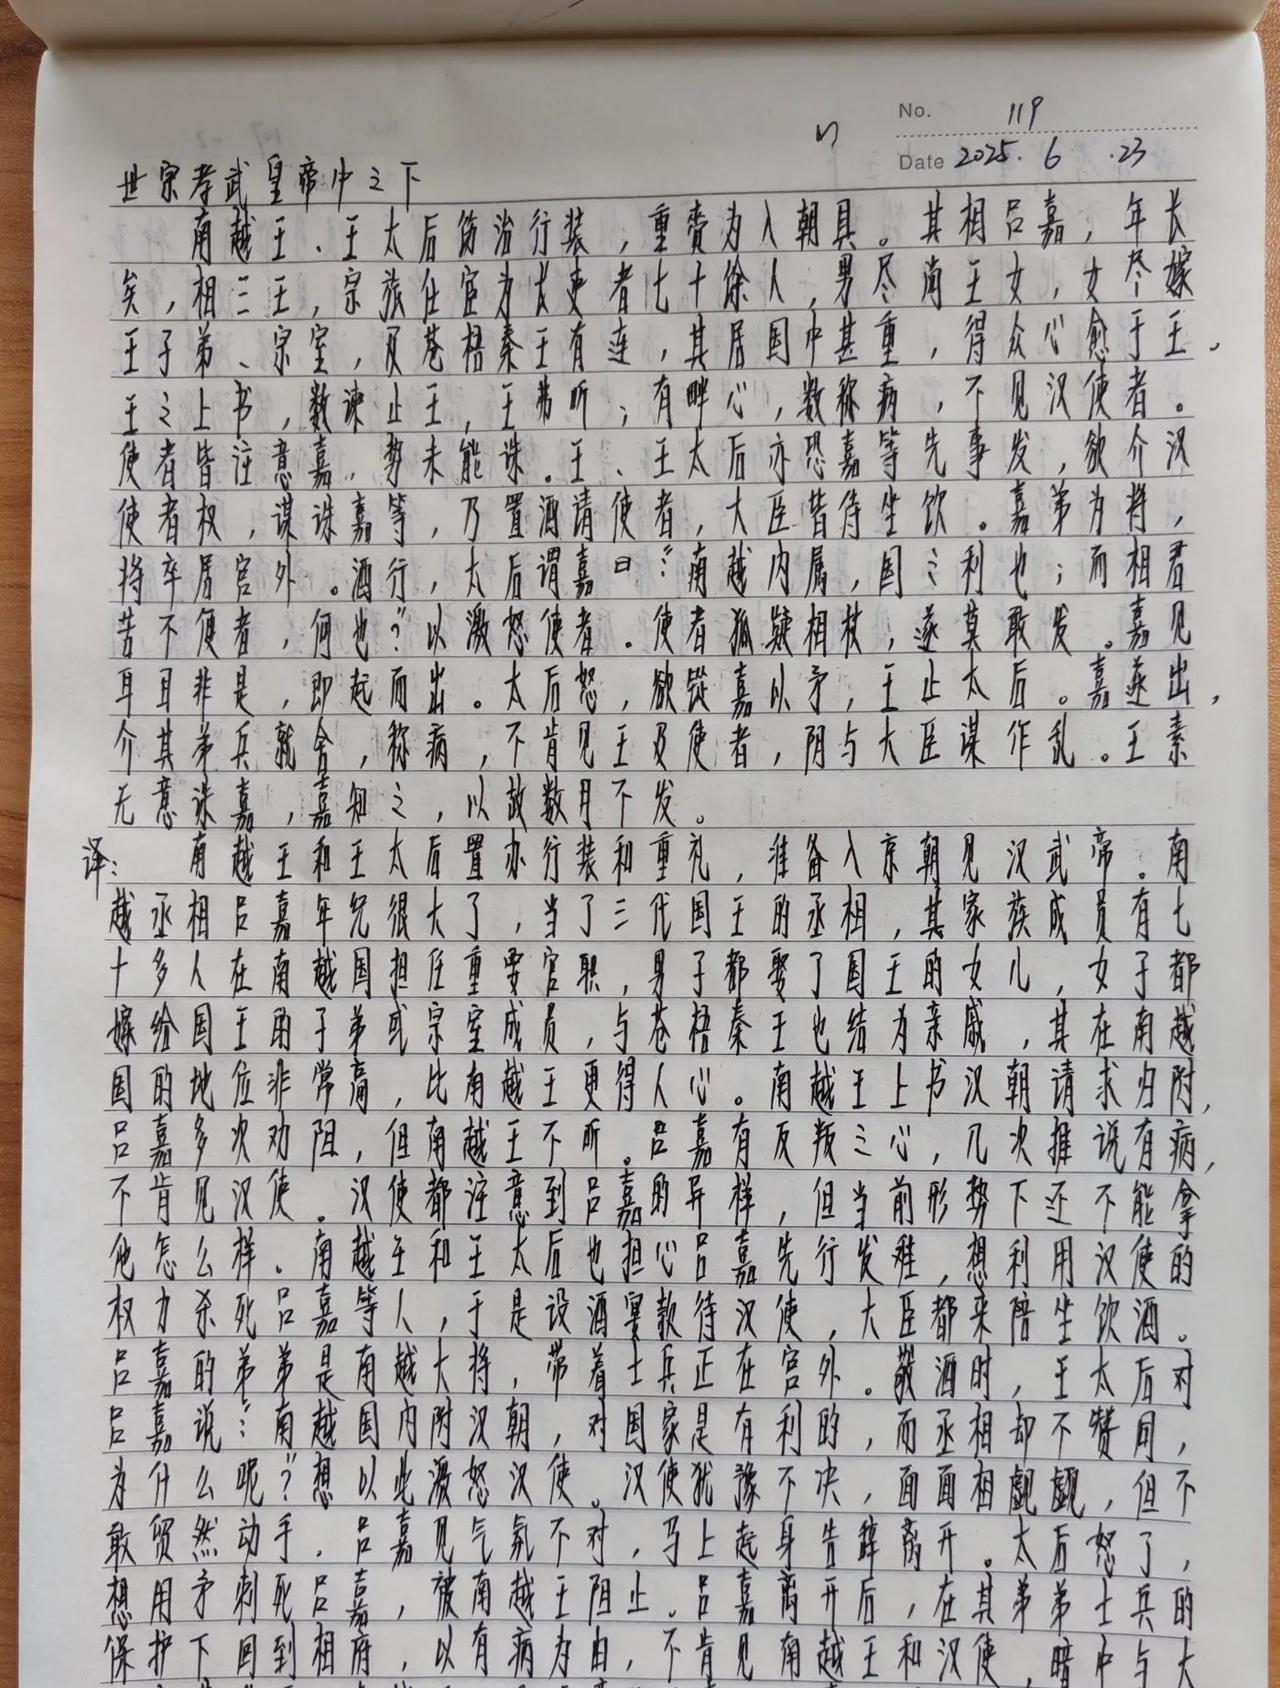 No. 119
Date 2025. 6 .23
世宗孝武皇帝中之下
南越王、王太后饬治行装，重赍为入朝具。其相吕嘉，年长
矣，相三王，宗族仕宦为长吏者七十余人，男尽尚王女，女尽嫁
王子弟、宗室，及苍梧秦王有连，其居国中甚重，得众心愈于王。
王之上书，数谏止王，王弗听；有畔心，数称病，不见汉使者。
使者皆注意嘉，势未能诛。王、王太后亦恐嘉等先事发，欲介汉
使者权，谋诛嘉等，乃置酒请使者，大臣皆侍坐饮。嘉弟为将，
将卒居宫外。酒行，太后谓嘉曰：“南越内属，国之利也；而相君
苦不便者，何也？”以激怒使者。使者狐疑相杖，遂莫敢发。嘉见
耳目非是，即起而出。太后怒，欲鏦嘉以矛，王止太后。嘉遂出，
介其弟兵就舍，称病，不肯见王及使者，阴与大臣谋作乱。王素
无意诛嘉，嘉知之，以故数月不发。
译：南越王和王太后置办行装和重礼，准备入京朝见汉武帝。南
越丞相吕嘉年纪很大了，当了三代国王的丞相，其家族成员有七
十多人在南越国担任重要官职，男子都娶了国王的女儿，女子都
嫁给国王的子弟或宗室成员，与苍梧秦王也结为亲戚，其在南越
国的地位非常高，比南越王更得人心。南越王上书汉朝请求归附，
吕嘉多次劝阻，但南越王不听。吕嘉有反叛之心，几次推说有病，
不肯见汉使。汉使都注意到吕嘉的异样，但当前形势下还不能拿
他怎么样。南越王和王太后也担心吕嘉先行发难，想利用汉使的
权力杀死吕嘉等人，于是设酒宴款待汉使，大臣都来陪坐饮酒。
吕嘉的弟弟是南越大将，带着士兵正在宫外。敬酒时，王太后对
吕嘉说：“南越国内附汉朝，对国家是有利的，而丞相却不赞同，
为什么呢？”想以此激怒汉使。汉使犹豫不决，面面相觑觑，但不
敢贸然动手。吕嘉见气氛不对，马上起身告辞离开。太后怒了，
想用矛刺死吕嘉，被南越王阻止。吕嘉离开后，在其弟弟士兵的
保护下回到相府，以有病为由，不肯见南越王和汉使，暗中与大